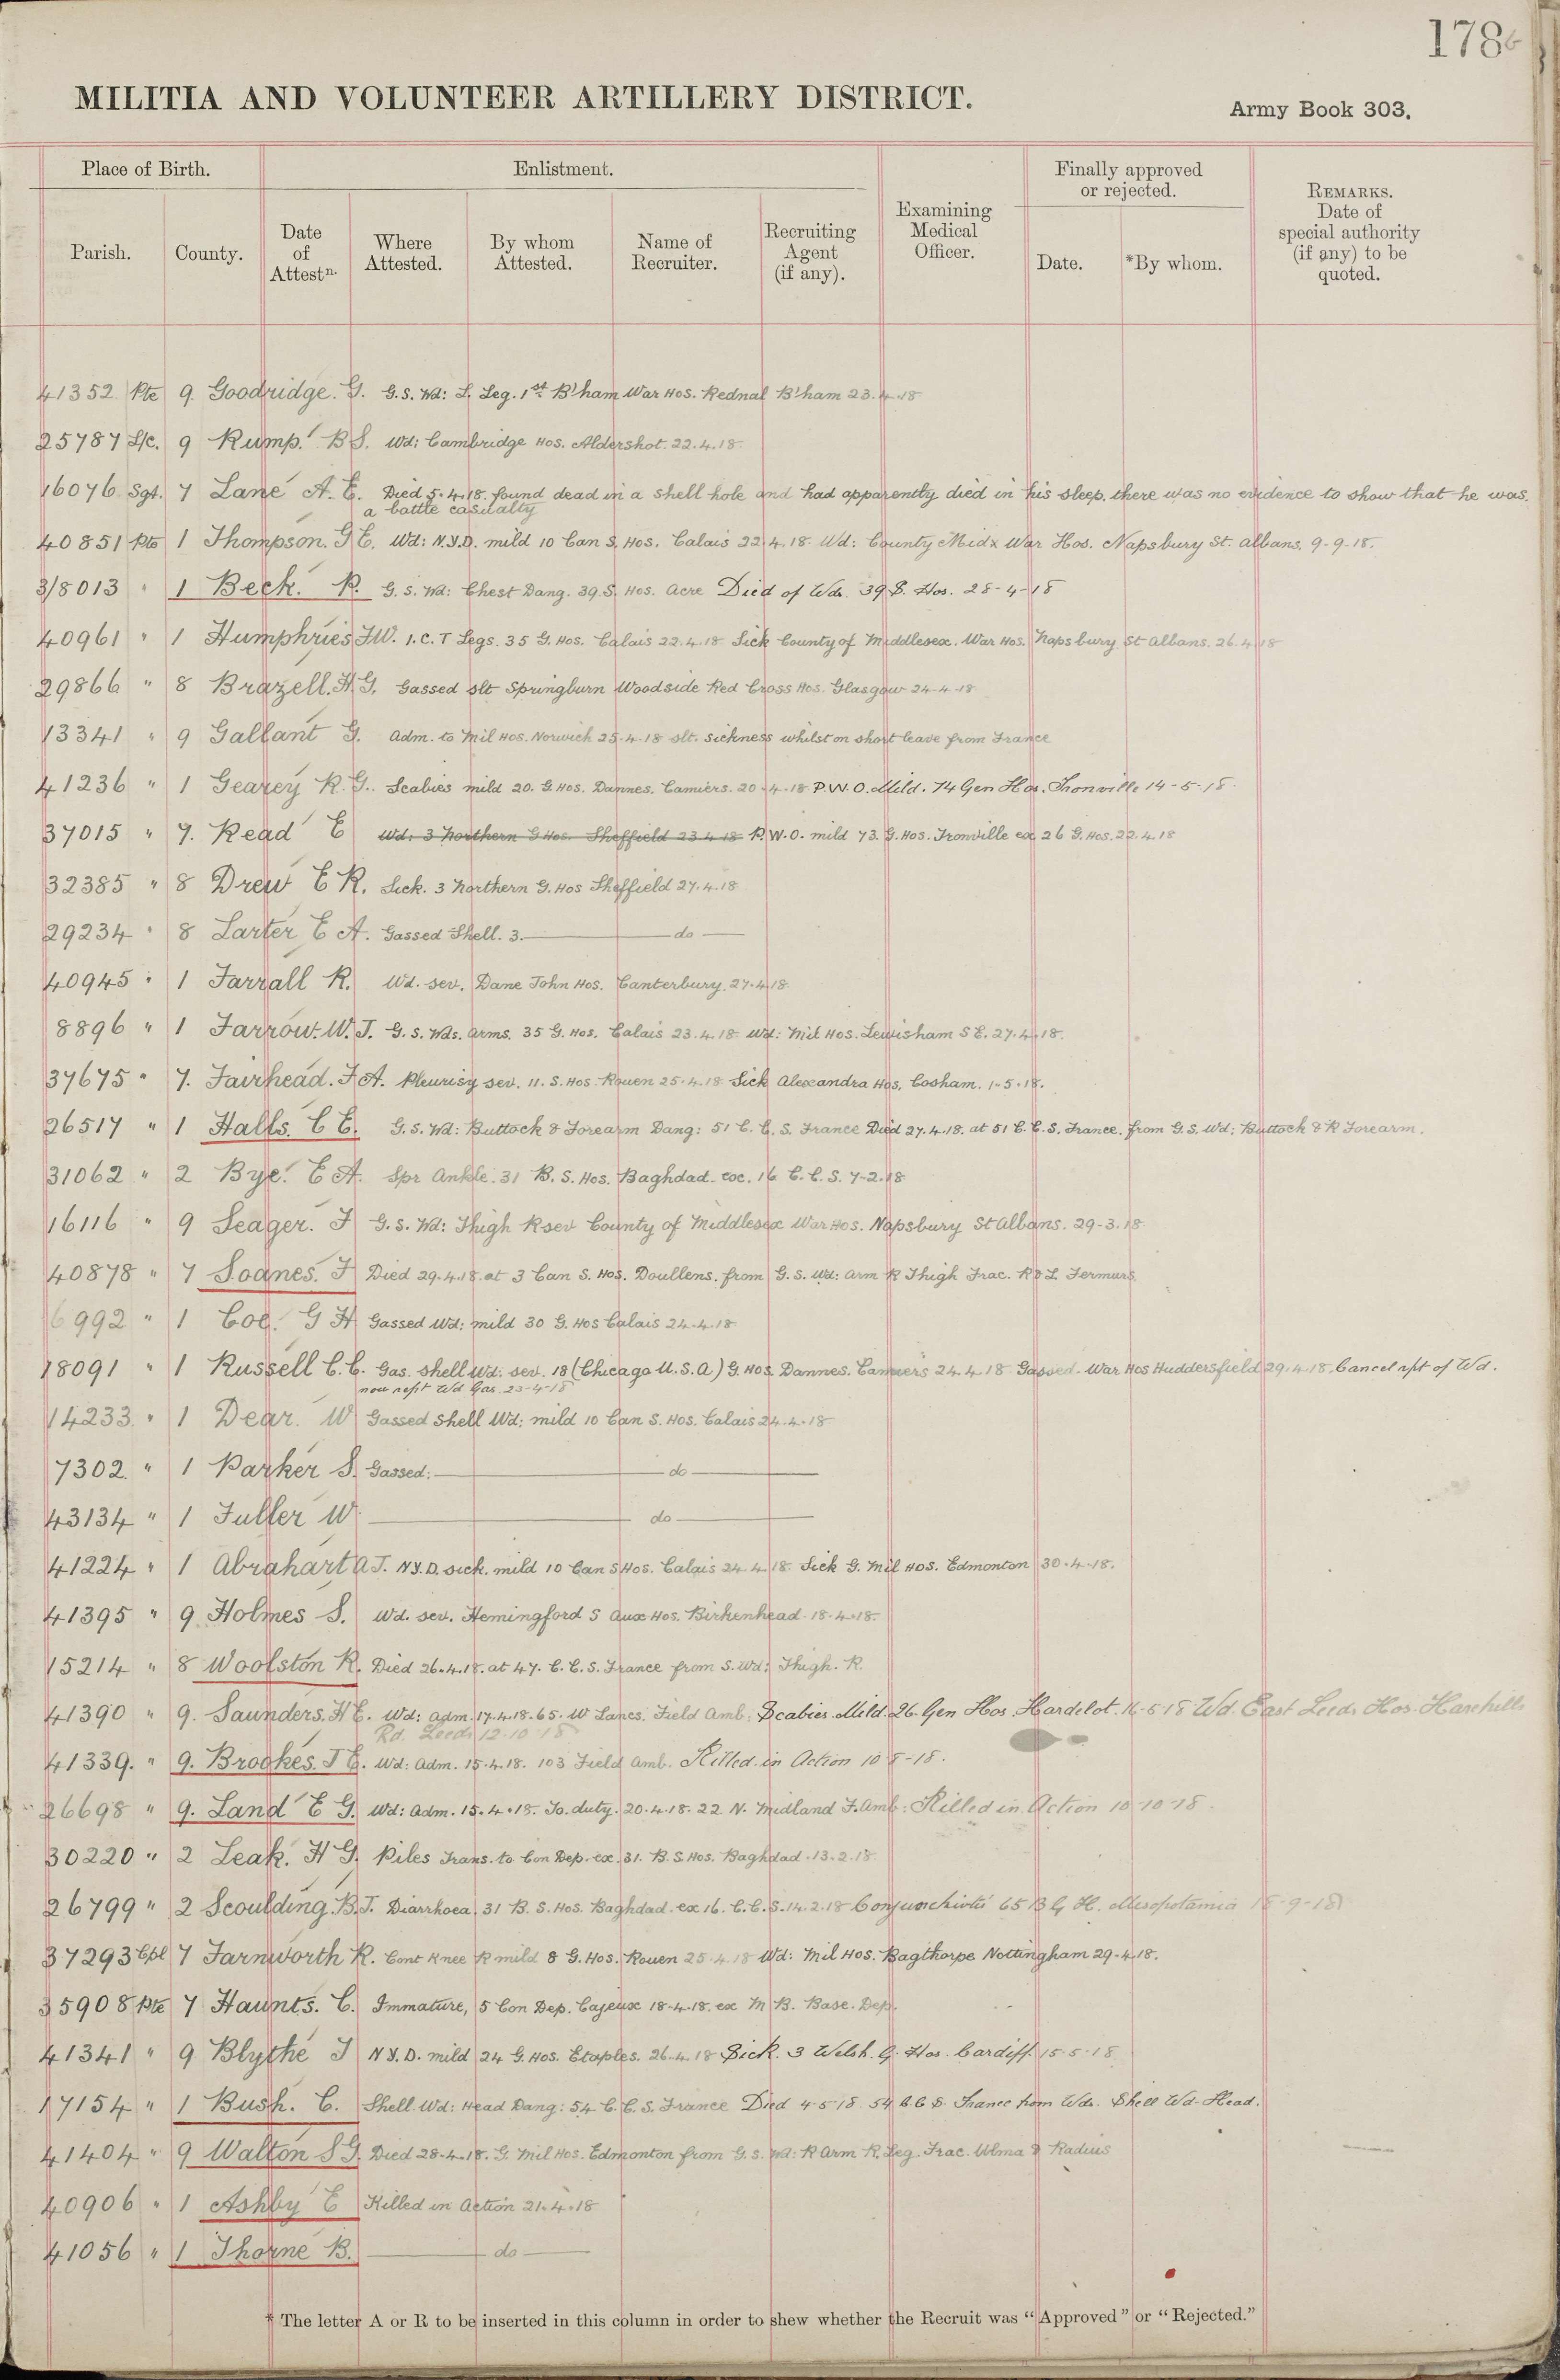 178b
MILITIA AND VOLUNTEER ARTILLERY DISTRICT.
Army Book 303.
Place of Birth.
Enlistment.
Finally approved or rejected.
Parish.
County.
Date of Attestn.
Where Attested.
By whom Attested.
Name of Recruiter.
Recruiting Agent (if any).
Examining Medical Officer.
Date.
*By whom.
REMARKS. Date of special authority (if any) to be quoted.
41352 Pte 9 Goodridge. G. G.S. Wd: L. Leg. 1st B'ham War Hos. Rednal B'ham 23.4.18
25787 L/c. 9 Rump. B S. Wd: Cambridge Hos. Aldershot. 22.4.18.
16076 Sgt. 7 Lane A. E. Died 5.4.18. found dead in a shell hole and had apparently died in his sleep. there was no evidence to show that he was
a battle casualty
40851 Pte 1 Thompson. G E. Wd: N.Y.D. mild 10 Can S. Hos. Calais 22.4.18. Wd: County Midx War Hos. Napsbury St. Albans. 9-9-18.
3/8013 " 1 Beck. R. G.S. Wd: Chest Dang. 39.S. Hos. Acre Died of Wds. 39 S. Hos. 28-4-18
40961 " 1 Humphries F.W. I.C.T Legs. 35 G. Hos. Calais 22.4.18 Sick County of Middlesex. War Hos. Napsbury St Albans. 26.4.18
29866 " 8 Brazell. H.G. Gassed slt Springburn Woodside Red Cross Hos. Glasgow 24-4-18
13341 " 9 Gallant G. Adm. to Mil Hos. Norwich 25.4.18 slt. sickness whilst on short leave from France
41236 " 1 Gearey R. G. Scabies mild 20. G. Hos. Dannes. Camiers. 20.4.18 P.W.O. Mild. 74 Gen Hos. Tronville 14-5-18.
37015 " 7. Read E Wd: 3 Northern G Hos. Sheffield 23.4.18 P.W.O. mild 73. G. Hos. Tronville ex 26 G. Hos. 22.4.18
32385 " 8 Drew E R. Sick. 3 Northern G. Hos Sheffield 27.4.18
29234 " 8 Larter E A. Gassed Shell. 3. do
40945 " 1 Farrall R. Wd. sev. Dane John Hos. Canterbury. 27.4.18
8896 " 1 Farrow. W. J. G.S. Wds. Arms. 35 G. Hos. Calais 23.4.18. Wd: Mil Hos. Lewisham S E. 27.4.18.
37675 " 7. Fairhead. F A. Pleurisy sev. 11. S. Hos. Rouen 25.4.18 Sick Alexandra Hos. Cosham. 1.5.18.
26517 " 1 Halls. C E. G.S. Wd: Buttock & Forearm Dang: 51 C. C. S. France Died 27.4.18. at 51 C. C. S. France. from G.S. Wd: Buttock & R Forearm.
31062 " 2 Bye. E A. Spr Ankle. 31 B. S. Hos. Baghdad. ex. 16 C. C. S. 7-2.18
16116 " 9 Seager. F G.S. Wd: Thigh R sev County of Middlesex War Hos. Napsbury St Albans. 29-3.18
40878 " 7 Soanes. F Died 29.4.18. at 3 Can S. Hos. Doullens. from G.S. Wd: Arm R Thigh Frac. R & L Fermurs.
6992 " 1 Coe. G H Gassed Wd: mild 30 G. Hos Calais 24.4.18
18091 " 1 Russell C. C. Gas. Shell Wd: sev. 18 (Chicago U.S.A) G. Hos. Dannes. Camiers 24.4.18 Gassed. War Hos Huddersfield 29.4.18. Cancel rpt of Wd.
now rept Wd Gas. 23-4-18
14233 " 1 Dear. W Gassed Shell Wd: mild 10 Can S. Hos. Calais 24.4.18
7302 " 1 Parker S. Gassed: do
43134 " 1 Fuller W do
41224 " 1 Abrahart A J. N.Y.D. sick. mild 10 Can S Hos. Calais 24.4.18. Sick G. Mil Hos. Edmonton 30.4.18.
41395 " 9 Holmes S. Wd. sev. Hemingford S Aux Hos. Birkenhead. 18.4.18.
15214 " 8 Woolston R. Died 26.4.18. at 47. C. C. S. France from S. Wd: Thigh. R.
41390 " 9. Saunders. H E. Wd: adm. 17.4.18. 65. W Lancs. Field Amb. Scabies. Mild. 26 Gen Hos. Hardelot. 16-5-18 Wd. East Leeds Hos. Harehills
Rd. Leeds 12.10.18
41339. " 9. Brookes. J E. Wd: Adm. 15.4.18. 103 Field Amb. Killed in Action 10-8-18.
26698 " 9. Land E G. Wd: Adm. 15.4.18. To. duty. 20.4.18. 22 N. Midland F. Amb: Killed in Action 10-10-18.
30220 " 2 Leak. H G. Piles Trans. to Con Dep. ex. 31. B. S. Hos. Baghdad. 13.2.18
26799 " 2 Scoulding. B. J. Diarrhoea. 31 B. S. Hos. Baghdad. ex 16. C. C. S. 14.2.18 Conjunctivitis 65 B G H. Mesopotamia 18-9-18
37293 Cpl 7 Farnworth R. Cont Knee R mild 8 G. Hos. Rouen 25.4.18 Wd: Mil Hos. Bagthorpe Nottingham 29.4.18.
35908 Pte 7 Haunts. C. Immature, 5 Con Dep. Cajeux 18.4.18. ex M B. Base. Dep.
41341 " 9 Blythe J N.Y.D. mild 24 G. Hos. Etaples. 26.4.18 Sick. 3 Welsh. G. Hos. Cardiff. 15-5-18
17154 " 1 Bush. C. Shell Wd: Head Dang: 54 C. C. S. France Died 4-5-18 54 C C S. France from Wds. Shell Wd. Head.
41404 " 9 Walton S G. Died 28.4.18. G. Mil Hos. Edmonton from G.S. Wd: R Arm R. Leg. Frac. Ulma & Radius
40906 " 1 Ashby E Killed in Action 21.4.18
41056 " 1 Thorne B. do
* The letter A or R to be inserted in this column in order to shew whether the Recruit was "Approved" or "Rejected."